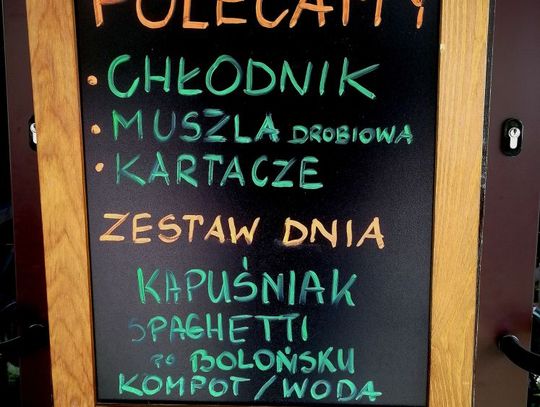 POLECAMY
• CHŁODNIK
• MUSZLA DROBIOWA
• KARTACZE
ZESTAW DNIA
KAPUŚNIAK
SPAGHETTI
PO BOLOŃSKU
KOMPOT / WODA